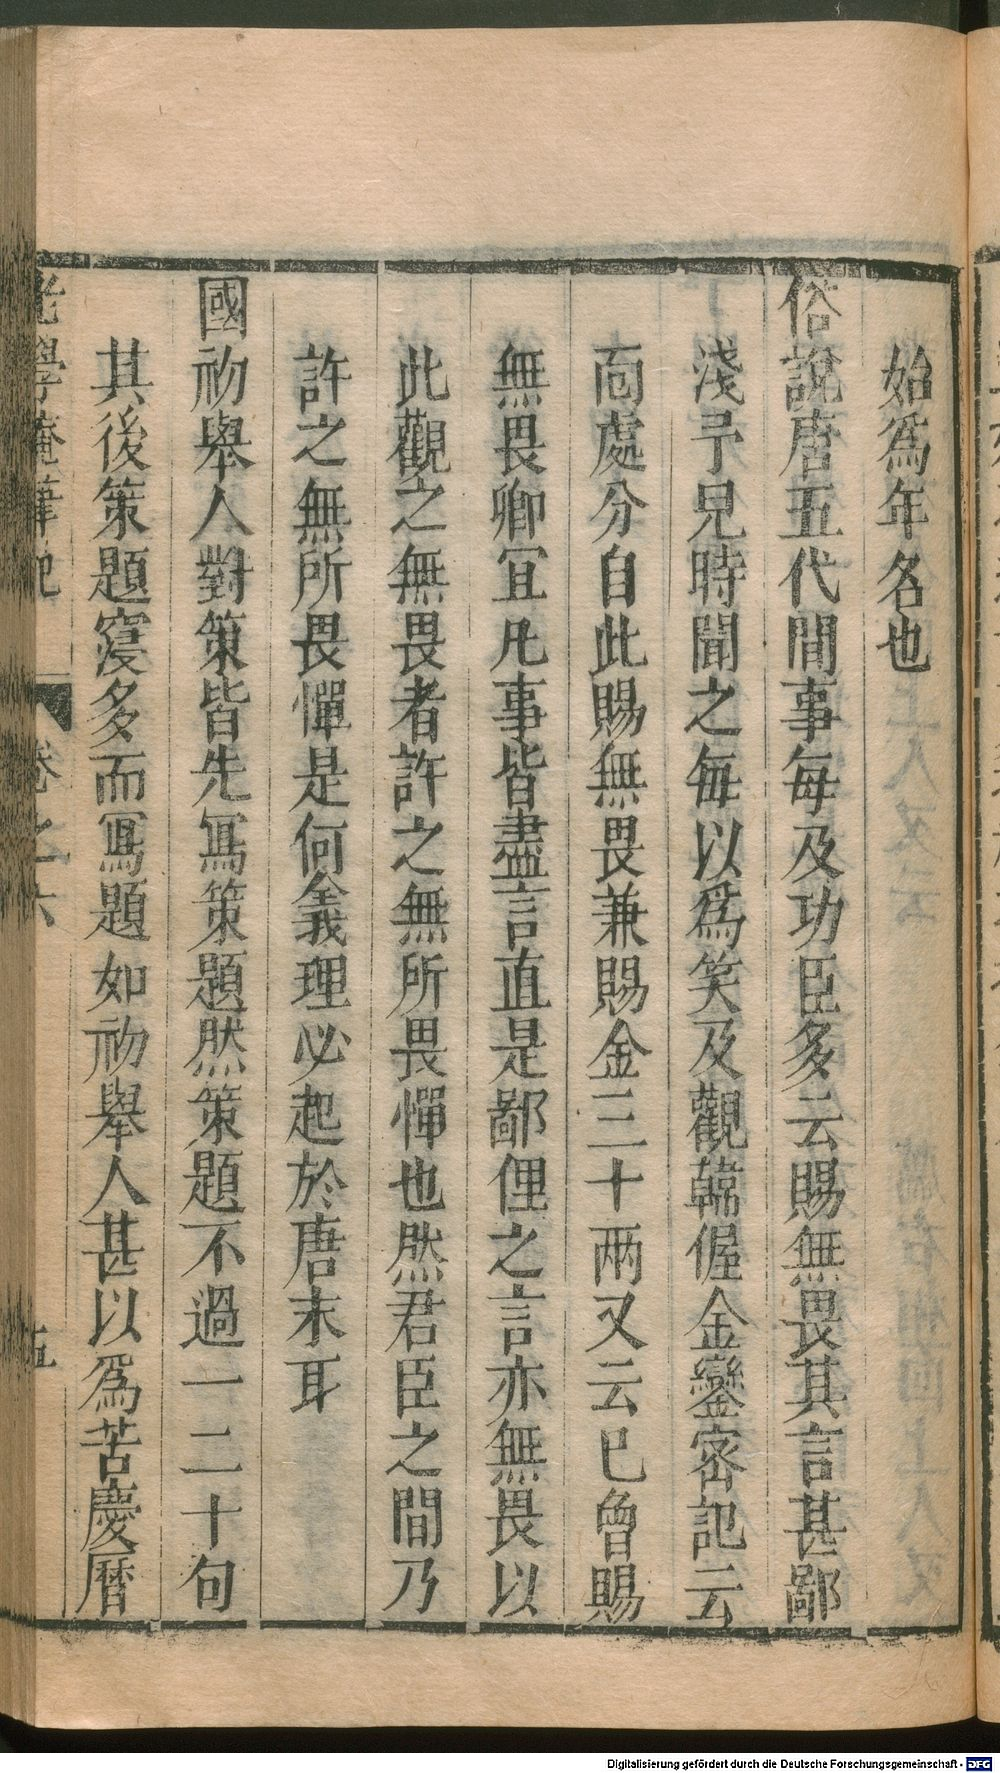 始爲年名也
俗說唐五代間事每及功臣多云賜無畏其言甚鄙
淺予兒時聞之每以爲笑及觀韓偓金鑾密記云
面處分自此賜無畏兼賜金三十兩又云已曾賜
無畏卿宜凡事皆盡言直是鄙俚之言亦無畏以
此觀之無畏者許之無所畏憚也然君臣之間乃
許之無所畏憚是何義理必起於唐末耳
國初舉人對策皆先寫策題然策題不過一二十句
其後策題寖多而寫題如初舉人甚以爲苦慶曆
老學庵筆記 卷之六 五
Digitalisierung gefördert durch die Deutsche Forschungsgemeinschaft - DFG